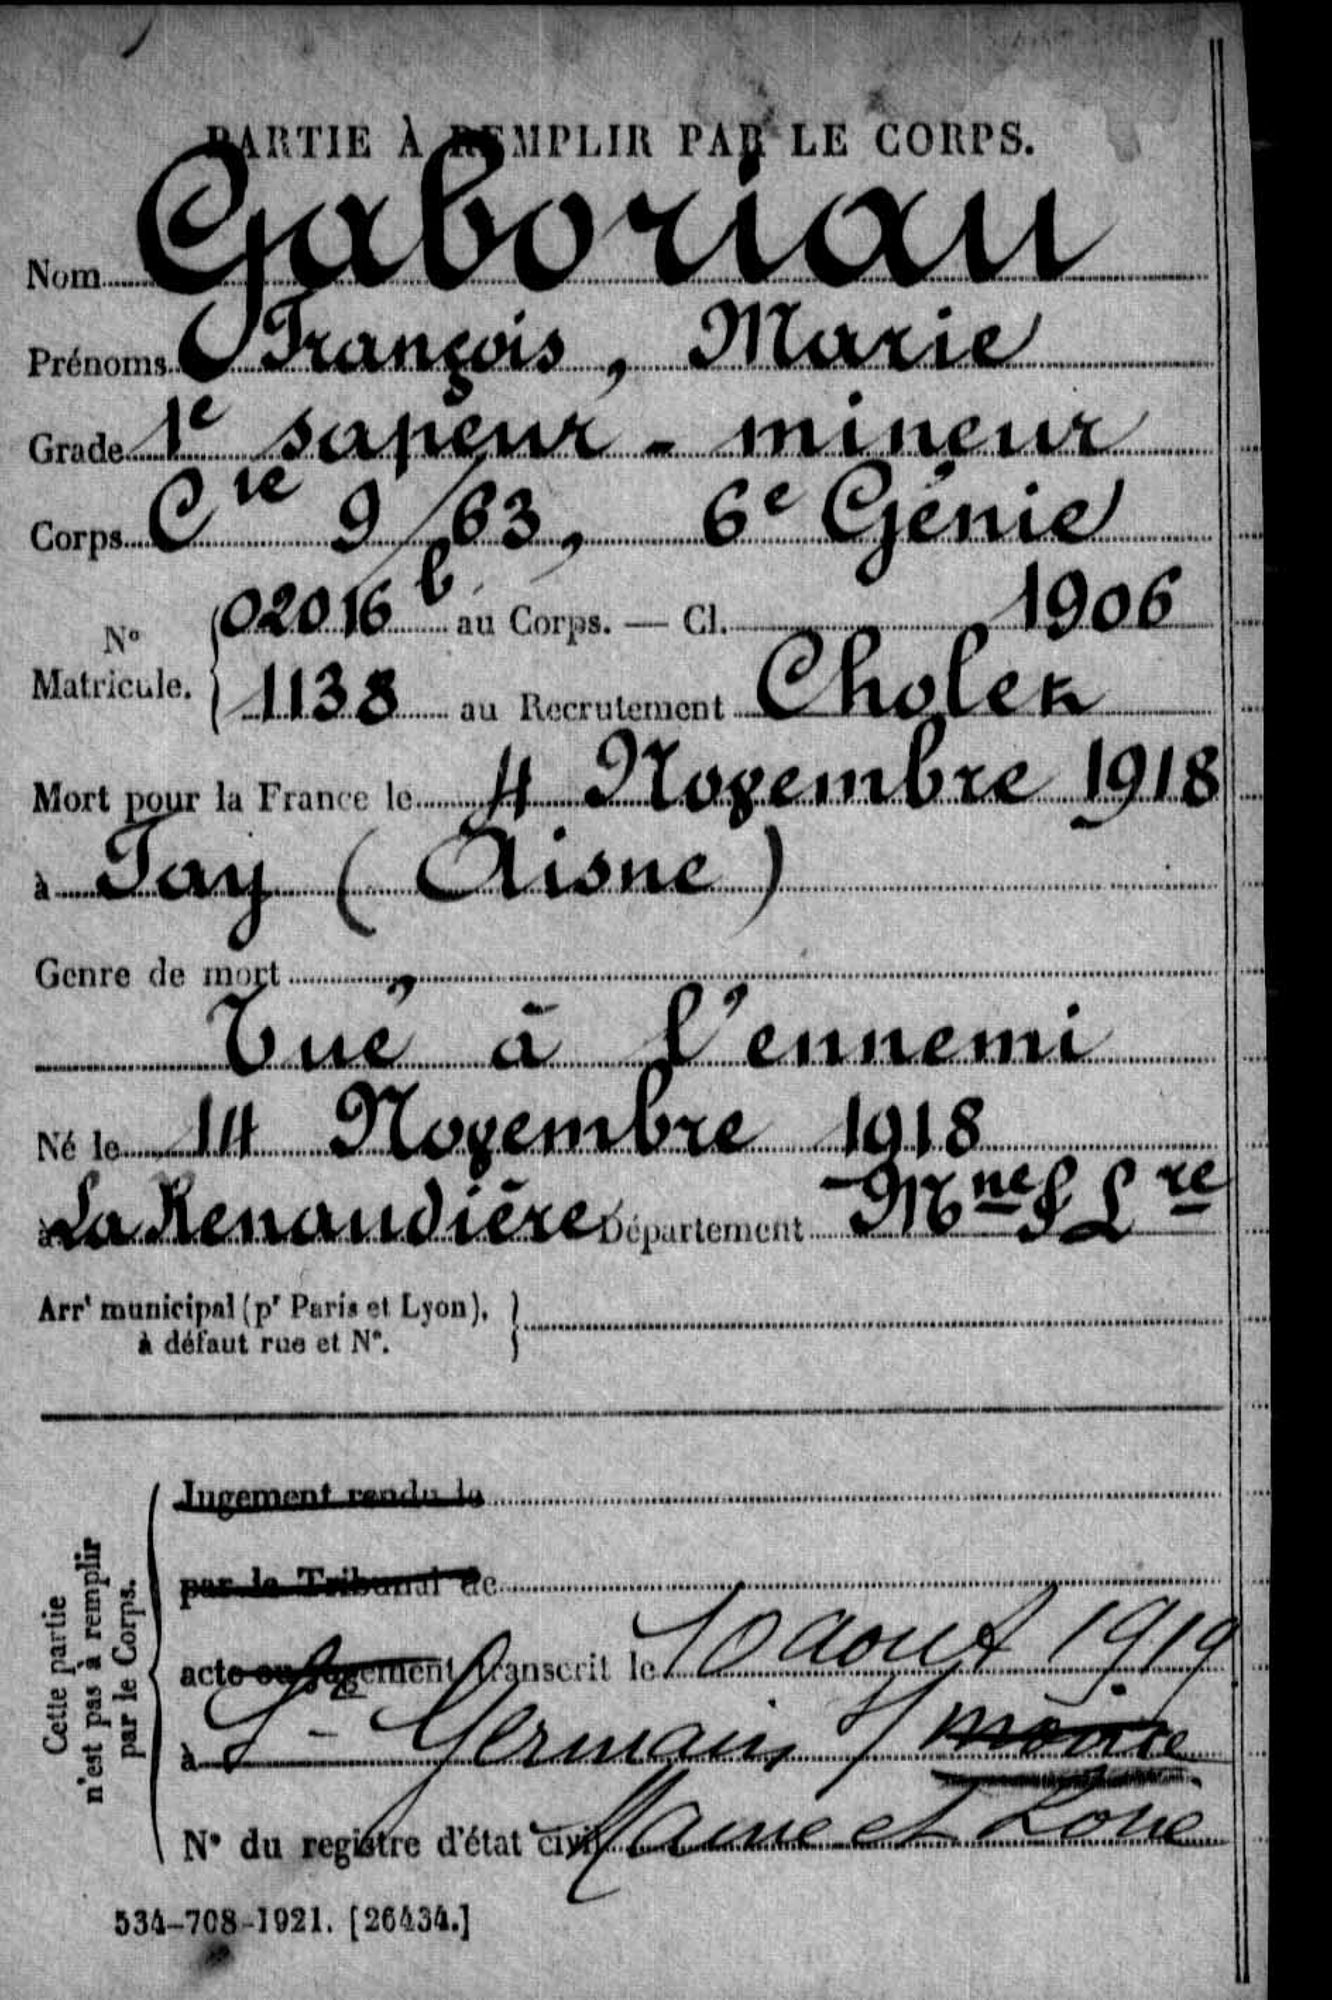 PARTIE À REMPLIR PAR LE CORPS.
Nom Gaboriau
Prénoms François, Marie
Grade 1e sapeur-mineur
Corps Cie 9/63, 6e Génie
N° Matricule. 02016b au Corps. — Cl. 1906
1138 au Recrutement Cholet
Mort pour la France le 4 Novembre 1918
à Tay (Aisne)
Genre de mort
Tué à l'ennemi
Né le 14 Novembre 1918
à La Renaudière Département Mne & Lre
Arrt municipal (pr Paris et Lyon),
à défaut rue et N°.
Cette partie
n'est pas à remplir
par le Corps.
Jugement rendu le
par le Tribunal de
acte ou jugement transcrit le 10 août 1919
à St Germain s/
N° du registre d'état civil Maine et Loire
534-708-1921. [26434.]